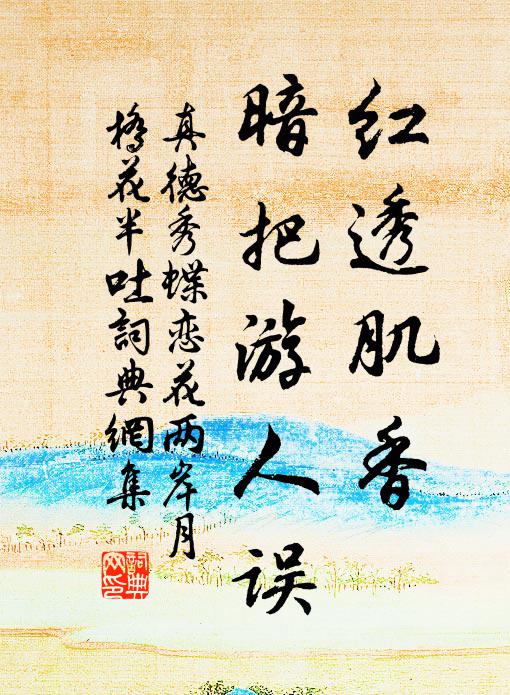 红透肌香
暗把游人误
真德秀蝶恋花两岸月
桥花半吐词典網集
詞典